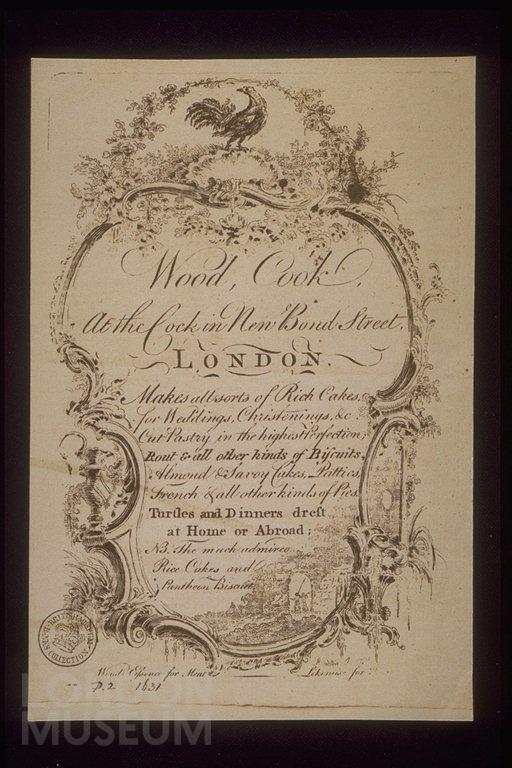 Wood, Cook,
At the Cock in New Bond Street,
LONDON.
Makes all sorts of Rich Cakes,
for Weddings, Christenings, &c.
Cut Pastry in the highest Perfection,
Rout & all other kinds of Biſcuits,
Almond & Savoy Cakes, Patties,
French & all other kinds of Pies.
Turtles and Dinners dreſt
at Home or Abroad;
NB. The much admired
Rice Cakes and
Pantheon Biscuit
Essence for Meat
Likewise for
P. 2 1631
LONDON
MUSEUM
COLLECTION